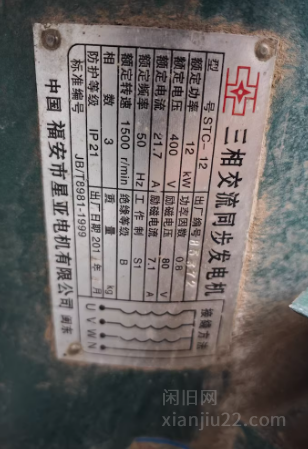 三相交流同步发电机
型号 STC-12 出厂编号
额定功率 12 kW 功率因数 0.8
额定电压 400 V 励磁电压 80 V
额定电流 21.7 A 励磁电流 7.1 A
额定频率 50 Hz 工作制 S1
额定转速 1500 r/min 绝缘等级 B
相数 3 质量 kg
防护等级 IP21 出厂日期 201 年 月
标准编号 JB/T8981-1999
中国 福安市星亚电机有限公司 闽东
接线方法
U V W N
闲旧网
xianjiu22.com